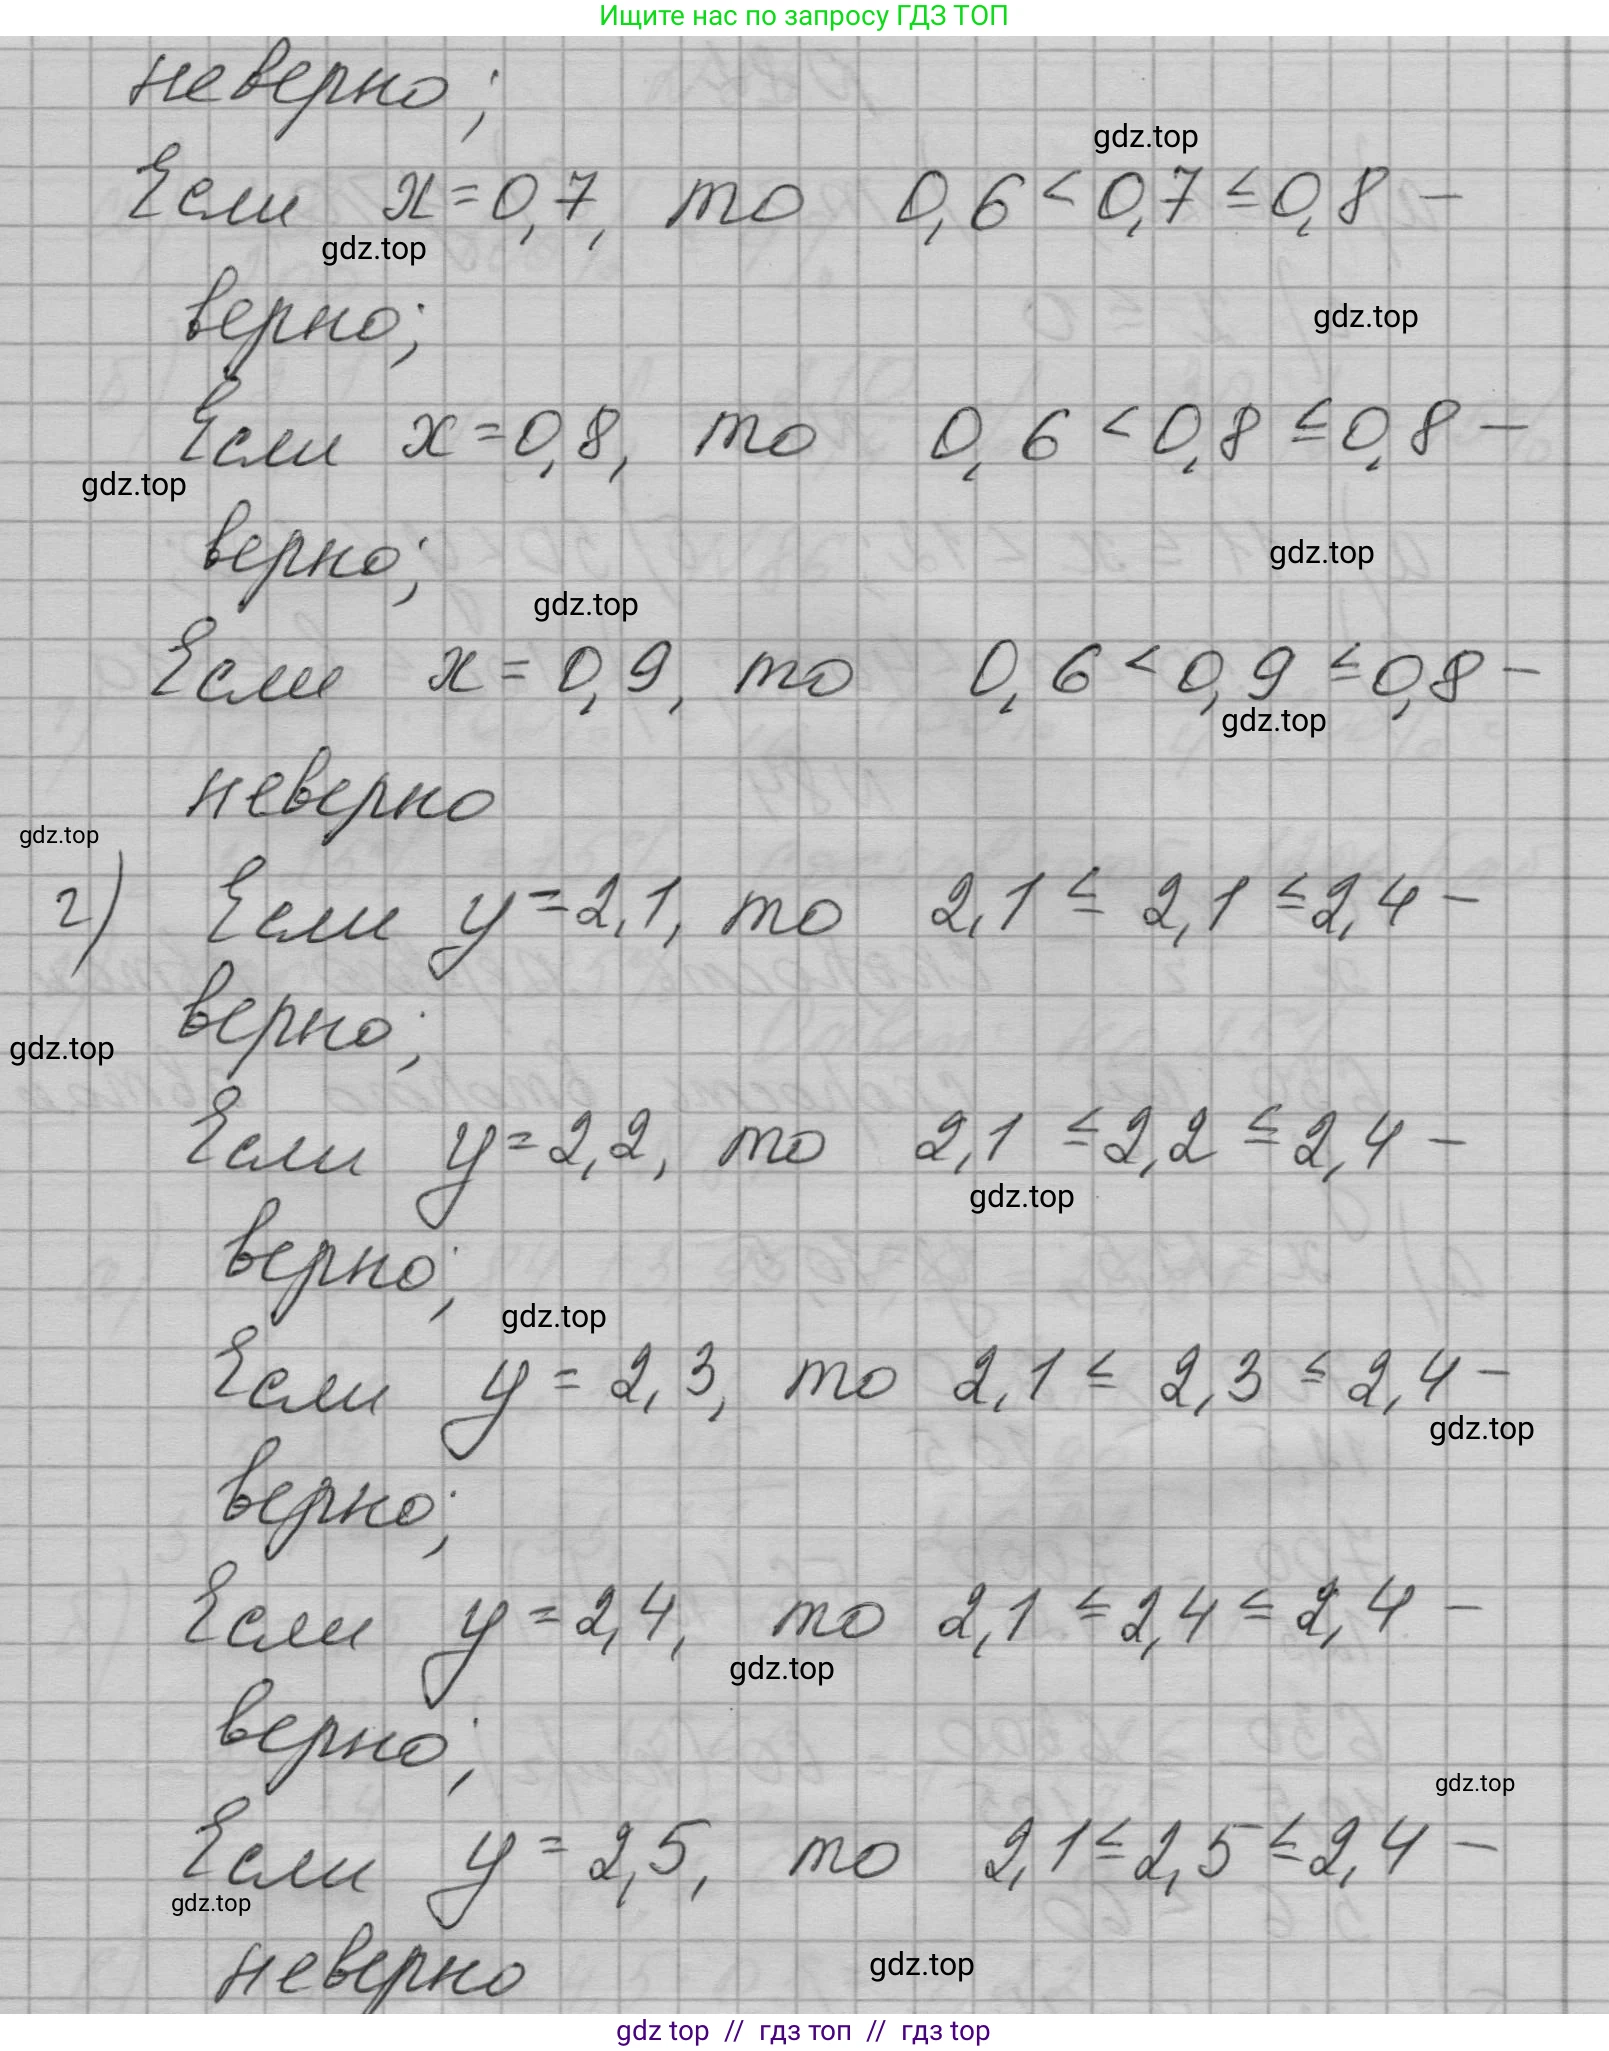 Ищите нас по запросу ГДЗ ТОП
неверно;
gdz.top
Если x=0,7, то 0,6<0,7≤0,8 –
gdz.top
верно;
gdz.top
Если x=0,8, то 0,6<0,8≤0,8 –
gdz.top
верно;
gdz.top
gdz.top
Если x=0,9, то 0,6<0,9≤0,8 –
gdz.top
неверно
gdz.top
г) Если y=2,1, то 2,1≤2,1≤2,4 –
верно;
gdz.top
Если y=2,2, то 2,1≤2,2≤2,4 –
gdz.top
верно;
gdz.top
Если y=2,3, то 2,1≤2,3≤2,4 –
gdz.top
верно;
Если y=2,4, то 2,1≤2,4≤2,4 –
gdz.top
верно;
gdz.top
Если y=2,5, то 2,1≤2,5≤2,4 –
gdz.top
неверно
gdz.top
gdz top // гдз топ // гдз top